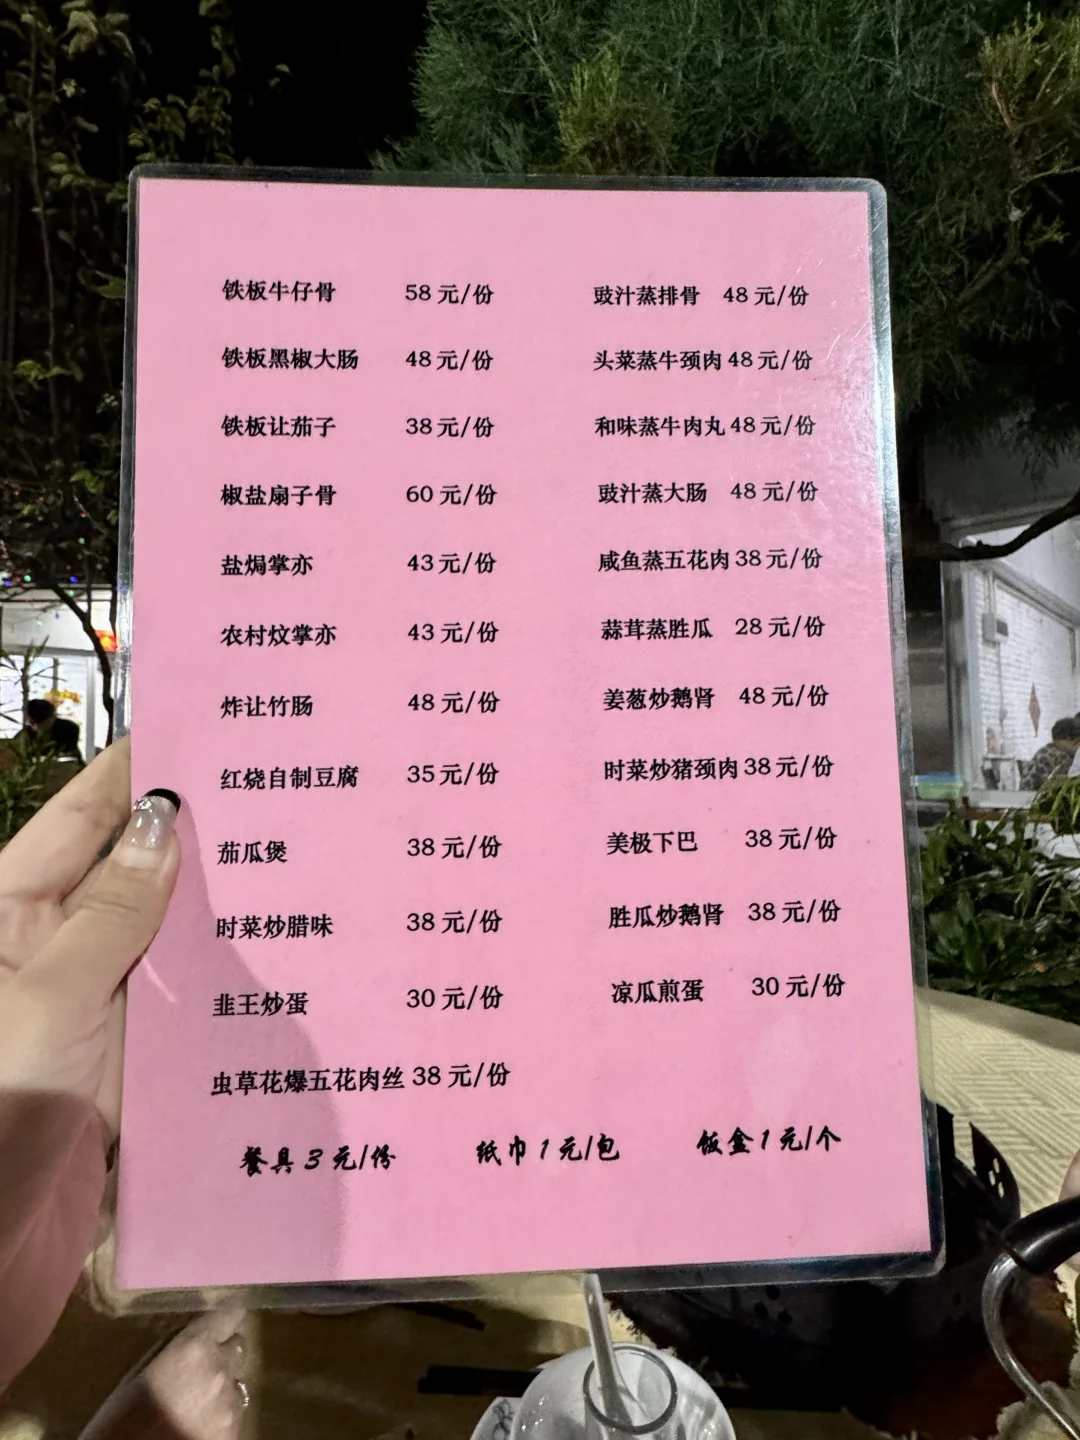 铁板牛仔骨 58元/份 豉汁蒸排骨 48元/份
铁板黑椒大肠 48元/份 头菜蒸牛颈肉 48元/份
铁板让茄子 38元/份 和味蒸牛肉丸 48元/份
椒盐扇子骨 60元/份 豉汁蒸大肠 48元/份
盐焗掌亦 43元/份 咸鱼蒸五花肉 38元/份
农村炆掌亦 43元/份 蒜茸蒸胜瓜 28元/份
炸让竹肠 48元/份 姜葱炒鹅肾 48元/份
红烧自制豆腐 35元/份 时菜炒猪颈肉 38元/份
茄瓜煲 38元/份 美极下巴 38元/份
时菜炒腊味 38元/份 胜瓜炒鹅肾 38元/份
韭王炒蛋 30元/份 凉瓜煎蛋 30元/份
虫草花爆五花肉丝 38元/份
餐具3元/份 纸巾1元/包 饭盒1元/个